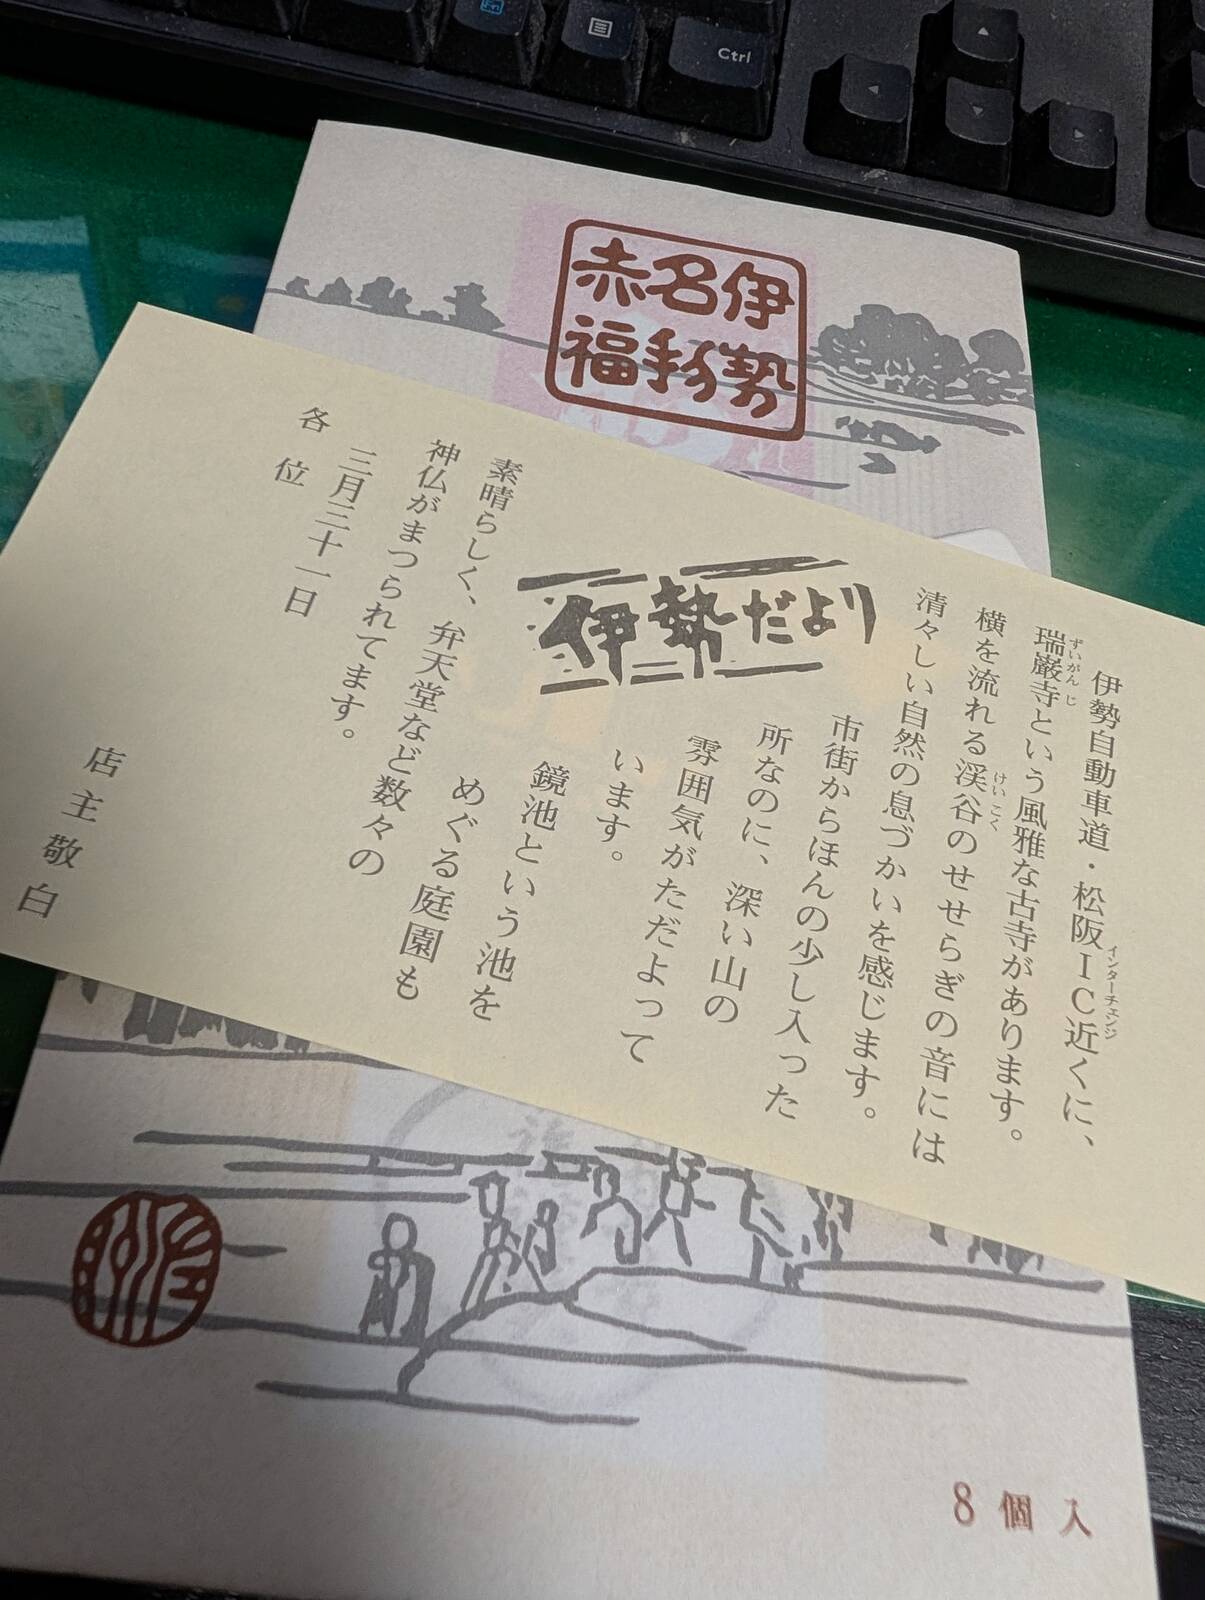 Ctrl
伊勢
名物
赤福
伊勢自動車道・松阪IC近くに、
インターチェンジ
瑞巌寺という風雅な古寺があります。
ずいがんじ
横を流れる渓谷のせせらぎの音には
けいこく
清々しい自然の息づかいを感じます。
市街からほんの少し入った
所なのに、深い山の
雰囲気がただよって
います。
伊勢だより
鏡池という池を
めぐる庭園も
素晴らしく、弁天堂など数々の
神仏がまつられてます。
三月三十一日
店主敬白
各位
8個入